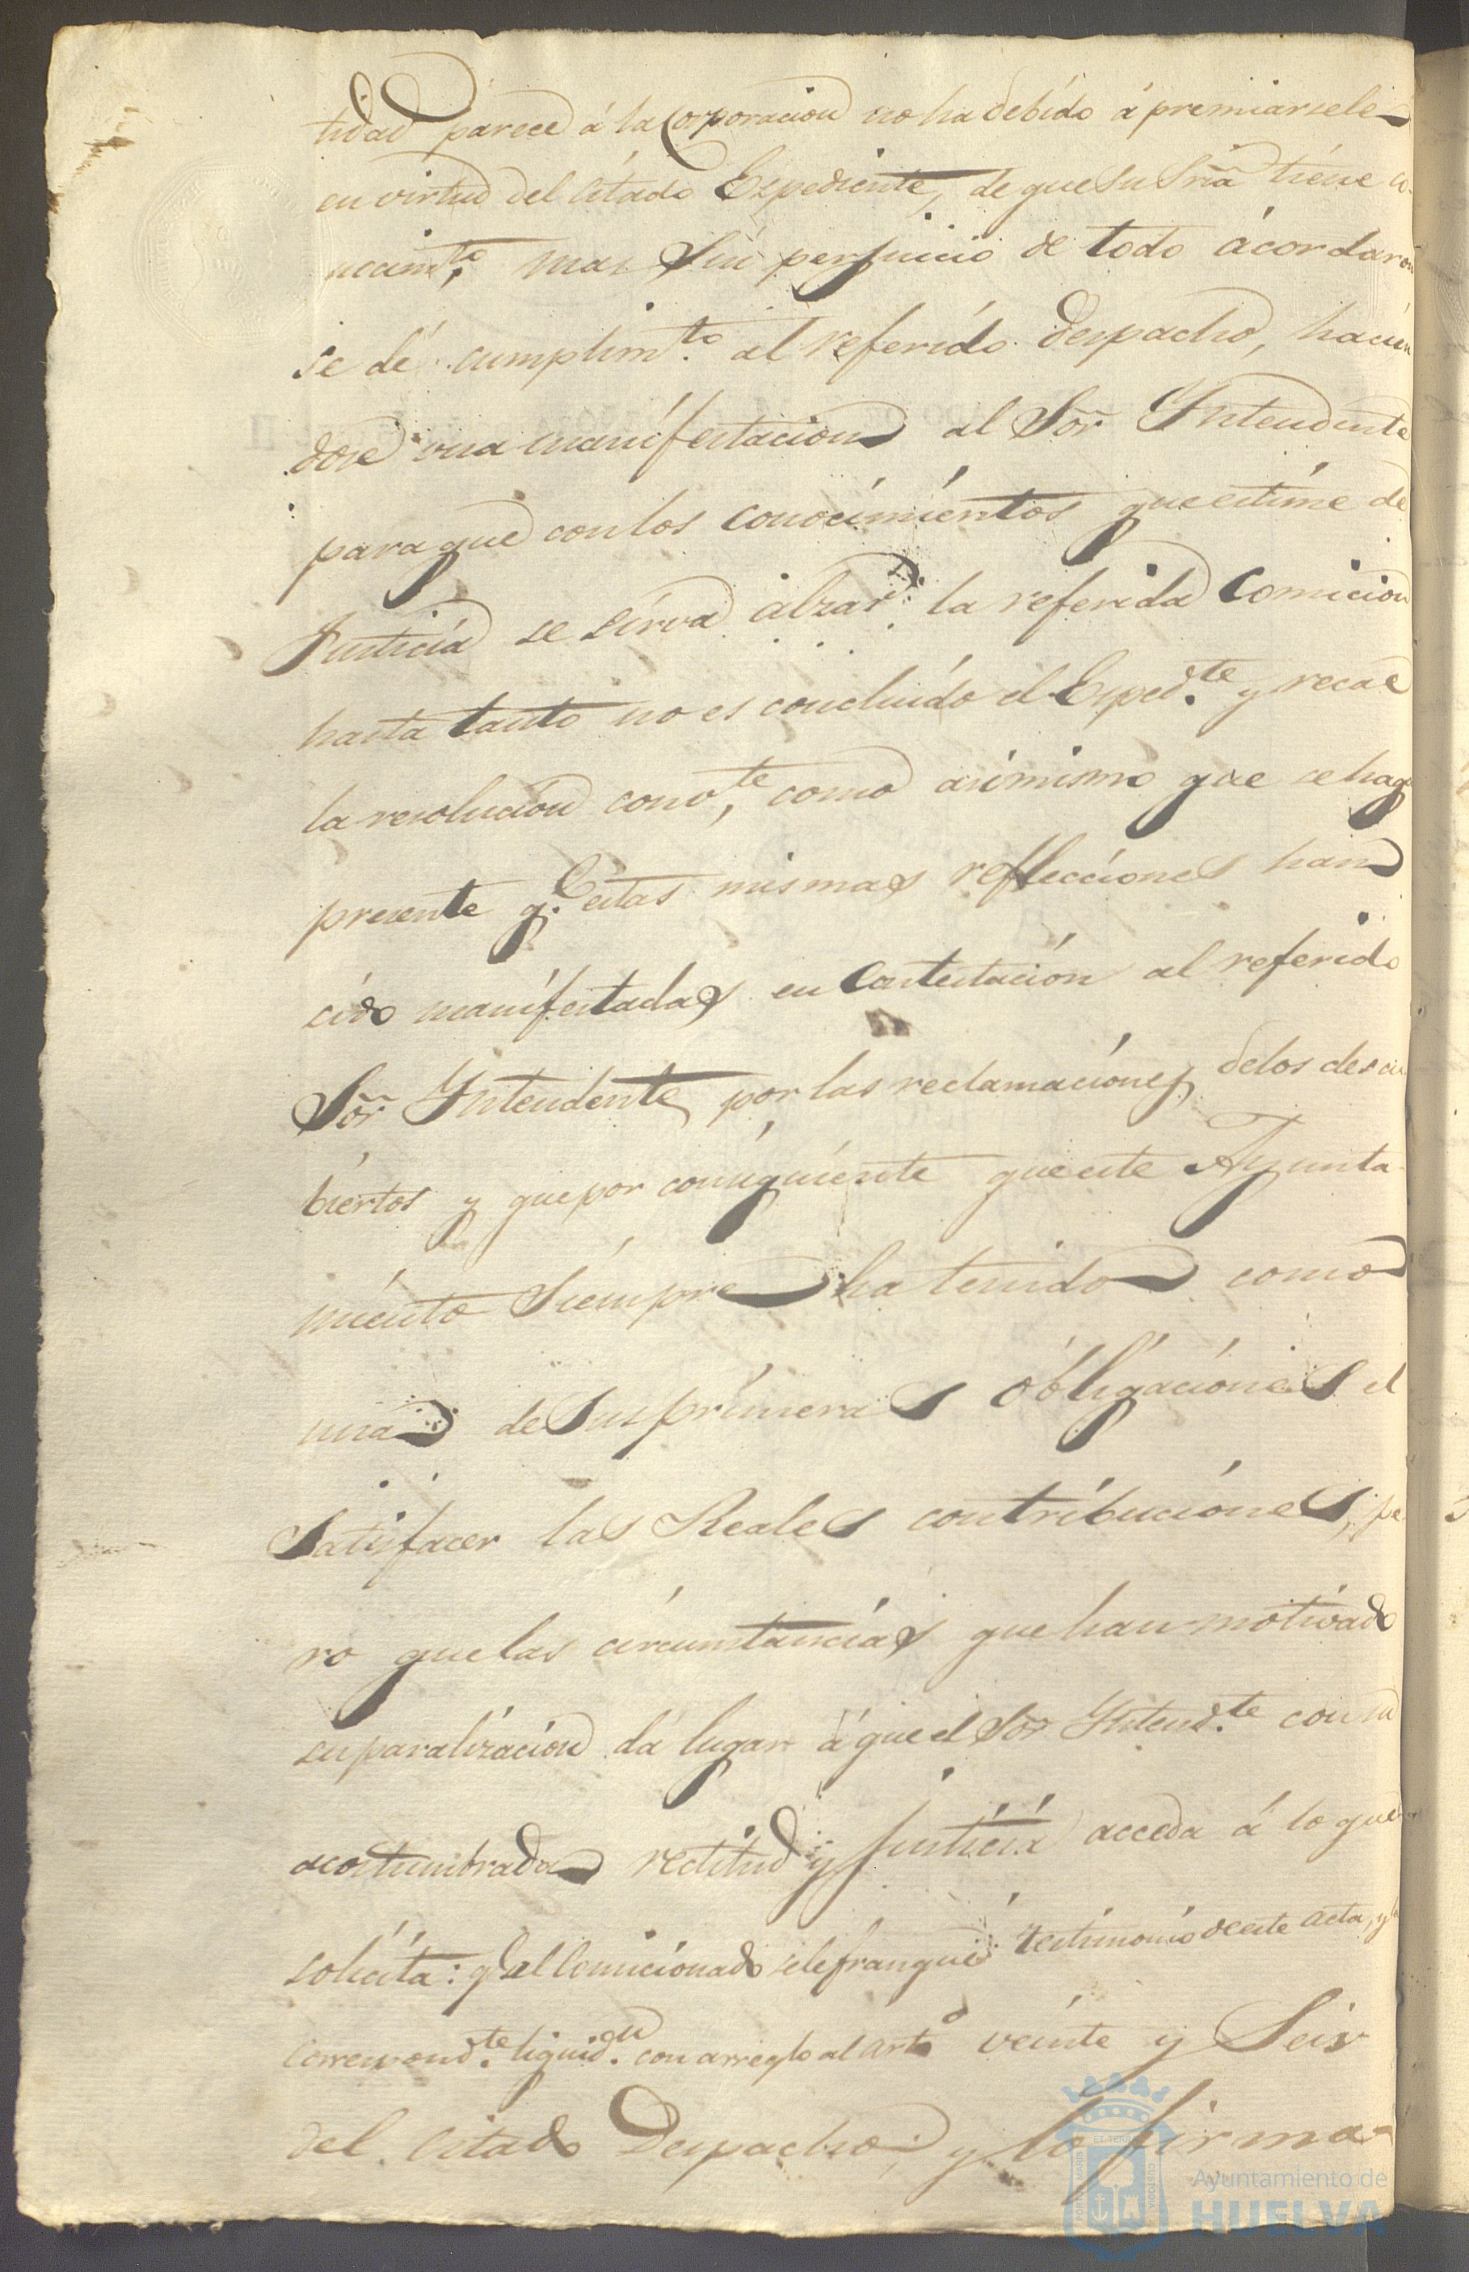 tidad parece á la Corporacion no ha debido á premiarsele
en virtud del citado Expediente, de que Su Sria tiene co-
nocim.to, mas Sin perjuicio de todo ácordaron
se dé cumplim.to al referido despacho, hacien
dose una manifestacion al Sor Yntendente
para que con los conocimientos que estime de
Justicia se sirva alzar la referida Comicion
hasta tanto no es concluido el Exped.te y recae
la resolucion conv.te, como asimismo que se haga
presente q.e estas mismas reflecciones han
cido manifestadas en Contestacion al referido
Sor Yntendente por las reclamaciones delos descu
biertos y que por consiguiente que este Ayunta-
miento Siempre ha tenido como
una de Sus primeras óbligaciones el
Satisfacer las Reales contribuciones, pe
ro que las circunstancias que han motivado
su paralizacion dá lugar á que el Sor Yntend.te con su
acostumbrada rectitud y Justicia acceda á lo que
solicita: y al Comicionado sele franqueé testimonio de este Acta, y la
correspond.te liquid.on con arreglo al arto veinte y Seis
del citado Despacho; y lo firma-
Ayuntamiento de
HUELVA